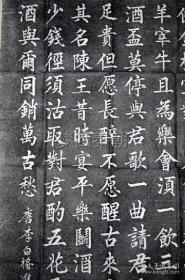 羊宰牛且為樂會湏一飲三
酒盃莫停與君歌一曲請君
足貴但愿長醉不愿醒古來
其名陳王昔時宴平樂鬭酒
少錢徑須沽取對君酌五花
酒與爾同銷萬古愁 唐李白將